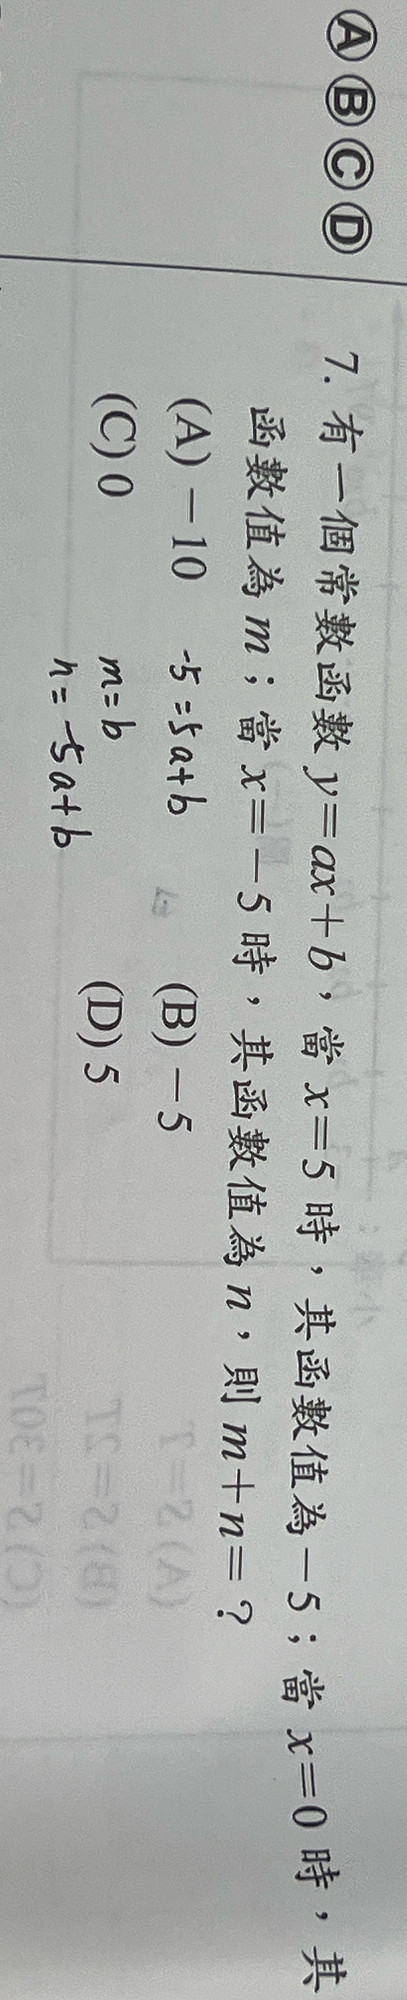 ⒶⒷⒸⒹ
7. 有一個常數函數 y=ax+b,當 x=5 時,其函數值為-5;當 x=0 時,其
函數值為 m;當 x=-5 時,其函數值為 n,則 m+n=?
(A)-10 (B)-5
(C) 0 (D) 5
-5=5a+b
m=b
n=-5a+b